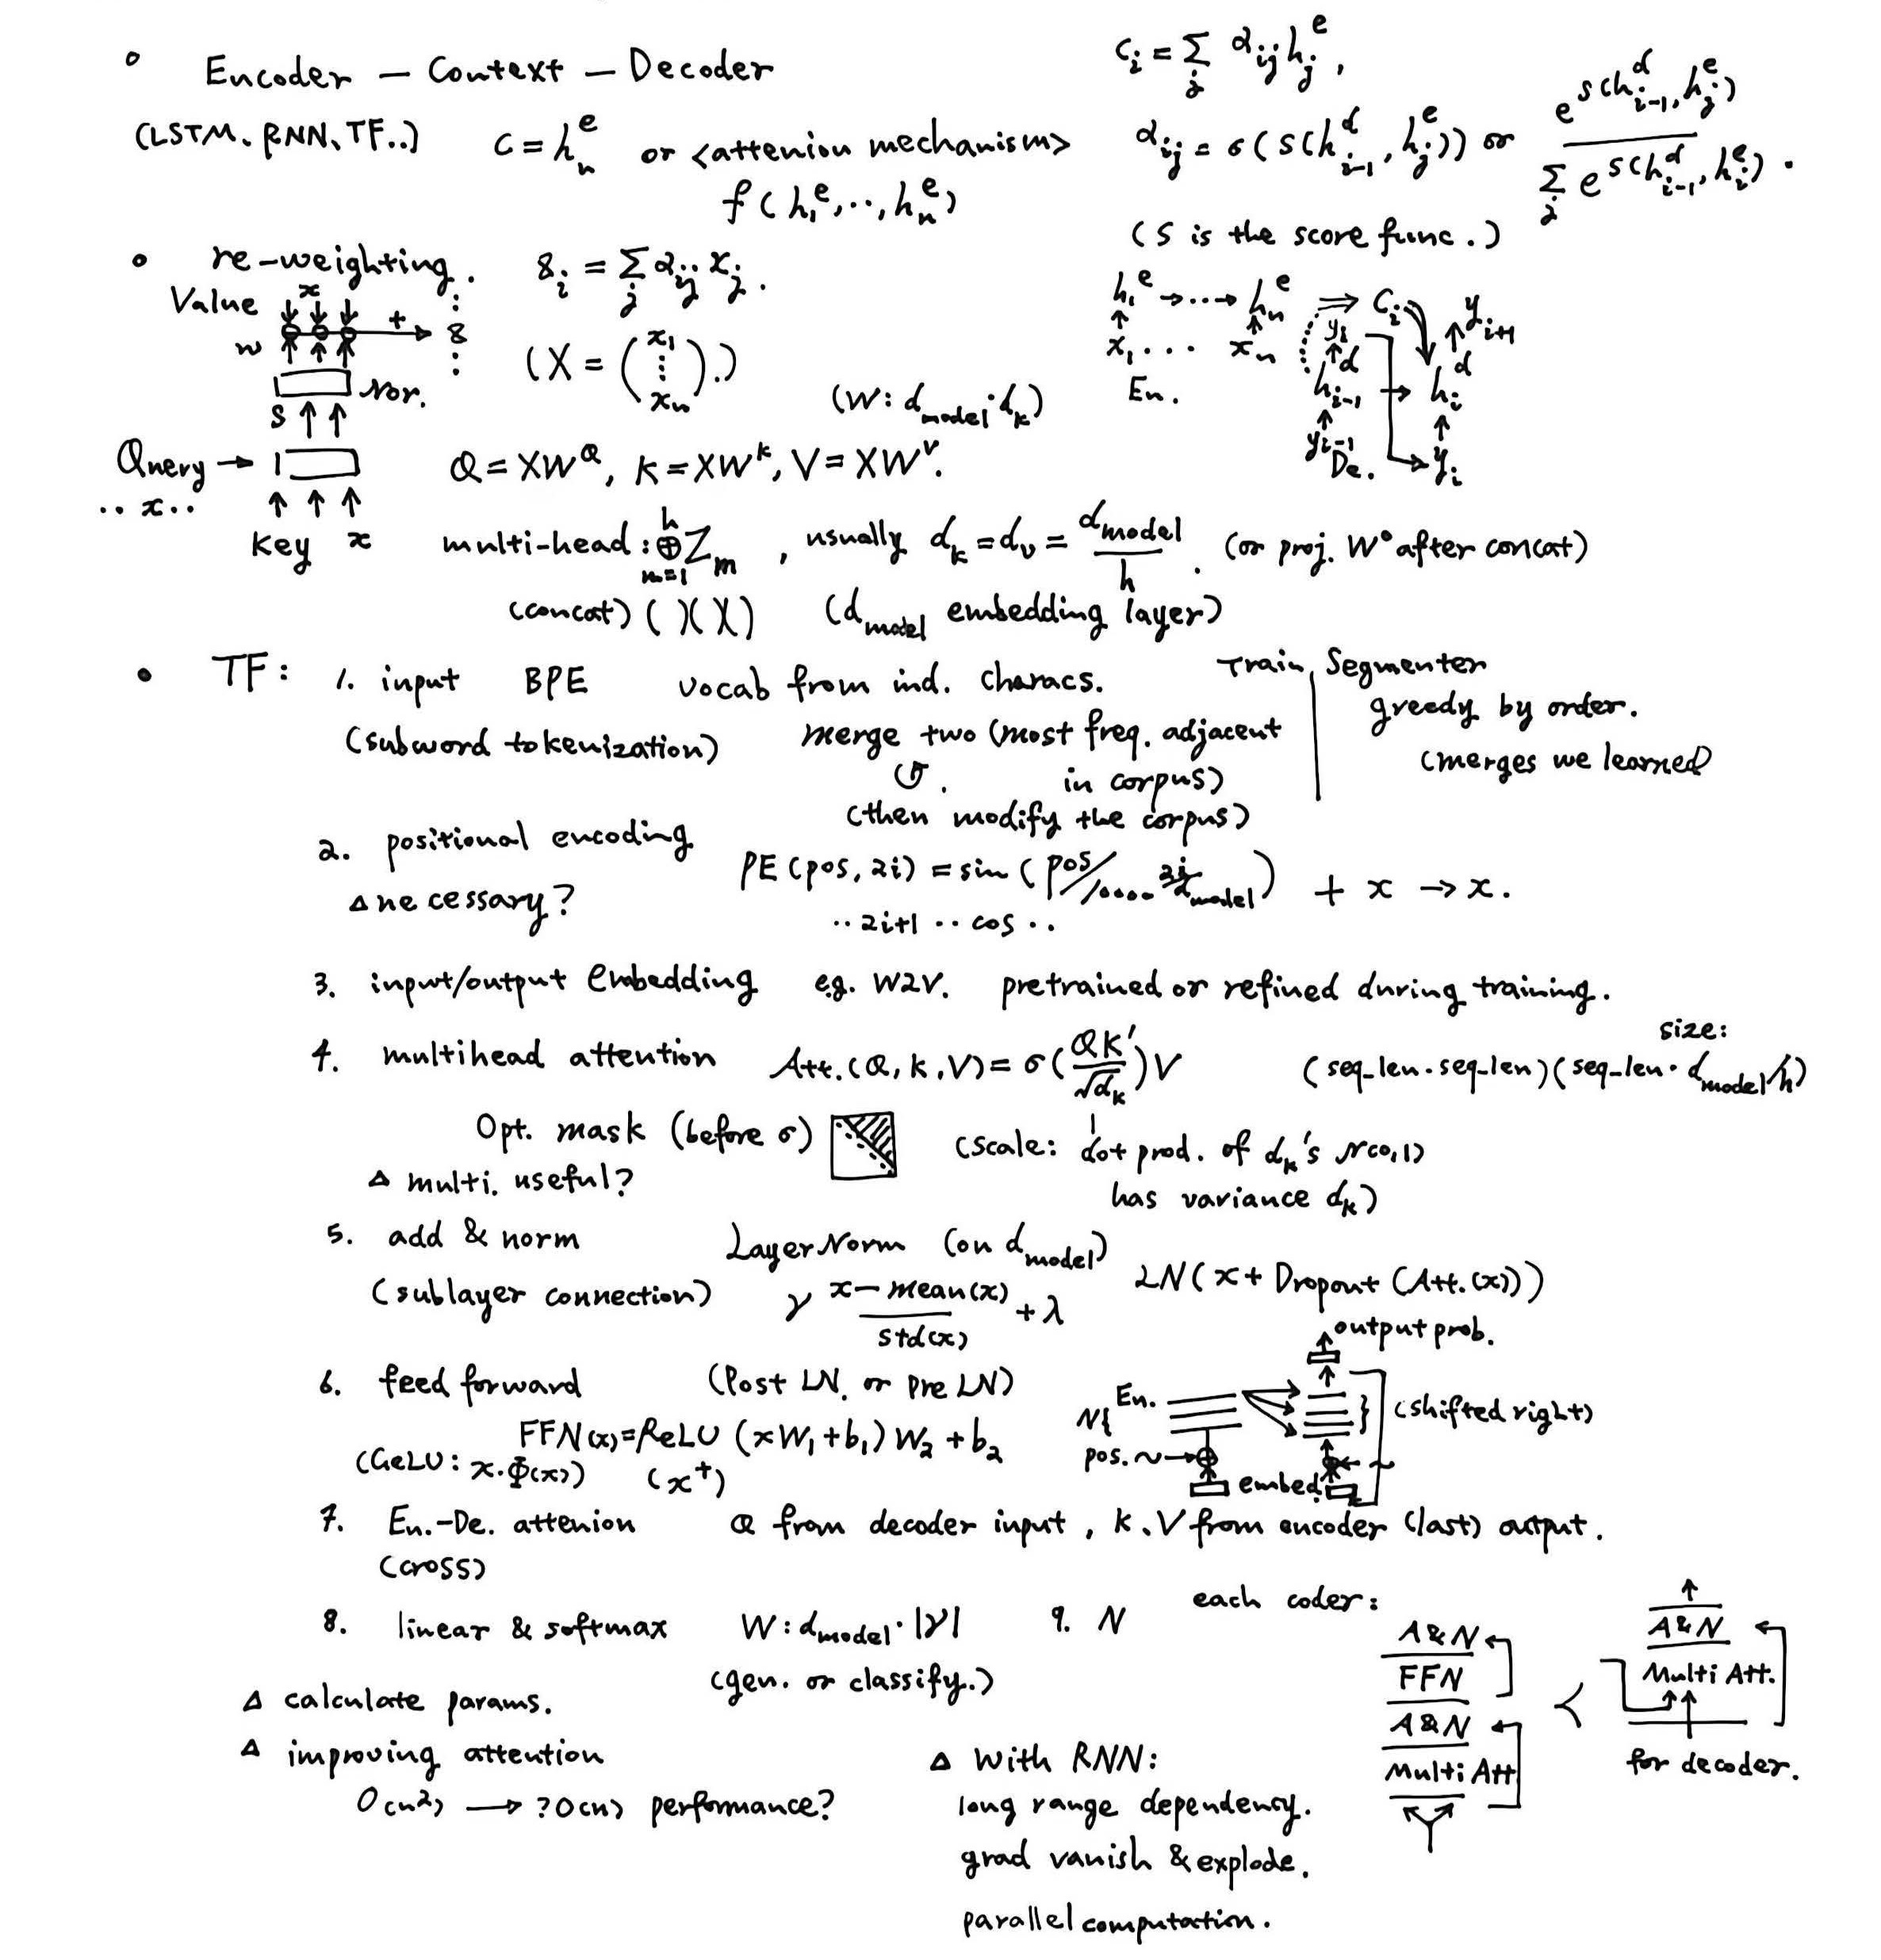 Encoder – Context – Decoder
(LSTM、RNN、TF..) c = hₙᵉ or <attenion mechanism>
f(h₁ᵉ,..,hₙᵉ)
cᵢ = Σⱼ αᵢⱼ hⱼᵉ ,
αᵢⱼ = σ(s(hᵢ₋₁ᵈ, hⱼᵉ)) or e^{s(hᵢ₋₁ᵈ, hⱼᵉ)} / Σⱼ e^{s(hᵢ₋₁ᵈ, hᵢᵉ)} .
(S is the score func.)
re-weighting. zᵢ = Σⱼ αᵢⱼ xⱼ .
Value x
w + z
(X = (x₁ ⋮ xₙ).)
Nor.
S
Query → 1
.. x..
key x
(W: d_model · d_k)
Q = XW^Q, K = XW^K, V = XW^V.
h₁ᵉ →...→ hₙᵉ ⇒ cᵢ yᵢ₊₁
x₁ ... xₙ yᵢ hᵢ₋₁ᵈ → hᵢᵈ
En. yᵢ₋₁ De. yᵢ
multi-head: ⊕_{m=1}^{h} Z_m , usually d_k = d_v = d_model / h . (or proj. W° after concat)
(concat) ( )( )( ) (d_model embedding layer)
TF: 1. input BPE vocab from ind. characs. Train | Segmenter
(subword tokenization) merge two (most freq. adjacent in corpus) greedy by order.
(then modify the corpus) (merges we learned)
2. positional encoding PE(pos, 2i) = sin(pos/10000^{2i/d_model}) + x → x.
△ necessary? ..2i+1 .. cos ..
3. input/output embedding e.g. W2V. pretrained or refined during training.
4. multihead attention Att.(Q, K, V) = σ(QK'/√d_k)V size: (seq_len · seq_len)(seq_len · d_model/h)
Opt. mask (before σ) (scale: dot prod. of d_k's N(0,1)
has variance d_k)
△ multi. useful?
5. add & norm LayerNorm (on d_model)
(sublayer connection) γ (x – mean(x))/std(x) + λ LN(x + Dropout(Att.(x)))
6. feed forward (Post LN. or Pre LN)
FFN(x) = ReLU (xW₁ + b₁)W₂ + b₂
(GeLU: x·Φ(x)) (x⁺)
output prob.
N{ En. } (shifted right)
pos. ~ → ⊕ ~
embed.
7. En.-De. attenion Q from decoder input , K、V from encoder (last) output.
(cross)
8. linear & softmax W: d_model · |V| 9. N each coder:
(gen. or classify.)
A&N
FFN
A&N
Multi Att
<
A&N
Multi Att.
for decoder.
△ calculate params.
△ improving attention
O(n²) → ?O(n) performance?
△ With RNN:
long range dependency.
grad vanish & explode.
parallel computation.